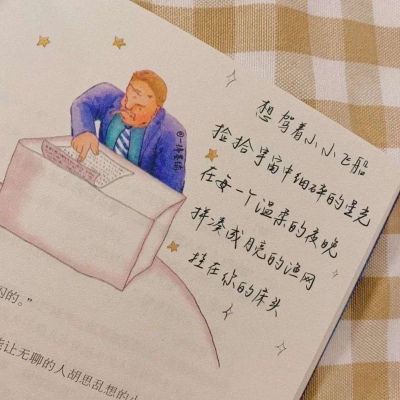 想驾着小小飞船
捡拾宇宙中细碎的星光
在每一个温柔的夜晚
拼凑成月亮的渔网
挂在你的床头
闪的。”
能让无聊的人胡思乱想的小